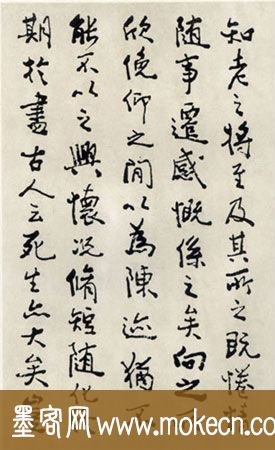 知老之将至及其所之既惓
随事遷感慨係之矣向之
欣俛仰之間以為陳迹猶不
能不以之興懷况脩短随化
期於盡古人云死生亦大矣豈
墨客网 www.mokecn.c